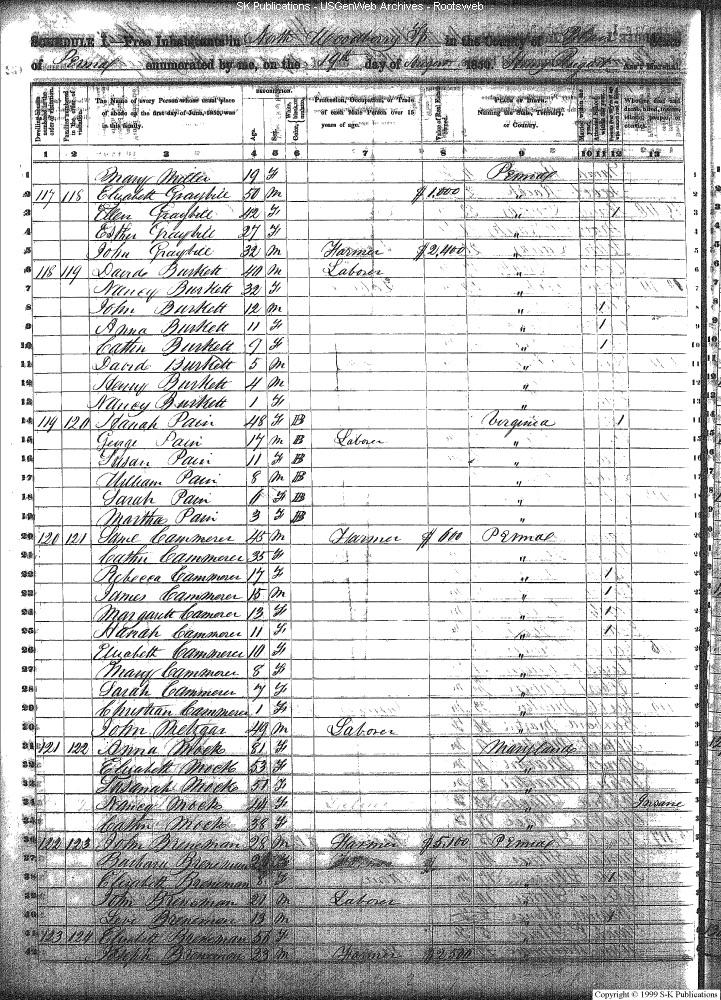 SK Publications - USGenWeb Archives - Rootsweb
SCHEDULE I.—Free Inhabitants in North Woodberry Tp in the County of State
of Penna enumerated by me, on the 19th day of 1850.
DESCRIPTION.
Dwelling-houses numbered in the order of visitation.
Families numbered in the order of visitation.
The Name of every Person whose usual place of abode on the first day of June, 1850, was in this family.
Age.
Sex.
Profession, Occupation, or Trade of each Male Person over 15 years of age.
Value of Real Estate owned.
PLACE OF BIRTH. Naming the State, Territory, or Country.
1 2 3 4 5 6 7 8 9 10 11 12 13
1 Mary Miller 19 F Pennae
2 117 118 Elizabeth Graybill 50 M $1,000 "
3 Ellen Graybill 42 F " 1
4 Esther Graybill 27 F "
5 John Graybill 32 M Farmer $2,400 "
6 118 119 David Burkett 40 M Laborer "
7 Nancy Burkett 32 F "
8 John Burkett 12 M " 1
9 Anna Burkett 11 F " 1
10 Cathn Burkett 9 F " 1
11 David Burkett 5 M "
12 Henry Burkett 4 M "
13 Nancy Burkett 1 F "
14 119 120 Hanah Pain 48 F B Virginia 1
15 George Pain 17 M B Laborer "
16 Susan Pain 11 F B "
17 William Pain 8 M B "
18 Sarah Pain F B "
19 Martha Pain 3 F B "
20 120 121 Saml Cammerer 45 M Farmer $600 Pennae
21 Cathn Cammerer 35 F "
22 Rebecca Cammerer 17 F " 1
23 James Cammerer 15 M " 1
24 Margarett Camerer 13 F " 1
25 Hanah Cammerer 11 F " 1
26 Elizabeth Cammerer 10 F "
27 Mary Cammerer 8 F "
28 Sarah Cammerer 7 F "
29 Christian Cammerer 1 F "
30 John Metzgar 49 M Laborer "
31 121 122 Anna Mock 81 F Maryland
32 Elizabeth Mock 53 F "
33 Susanah Mock 51 F "
34 Nancy Mock 44 F " Insane
35 Cathn Mock 38 F "
36 122 123 John Breneman 28 M Farmer $5,100 Pennae
37 Barbara Breneman F "
38 Elizabeth Breneman 8 F " 1
39 John Breneman 21 M Laborer "
40 Levi Breneman 13 M " 1
41 123 124 Breneman 56 "
42 Joseph Breneman 23 M Farmer $2,500 "
Copyright © 1999 S-K Publications